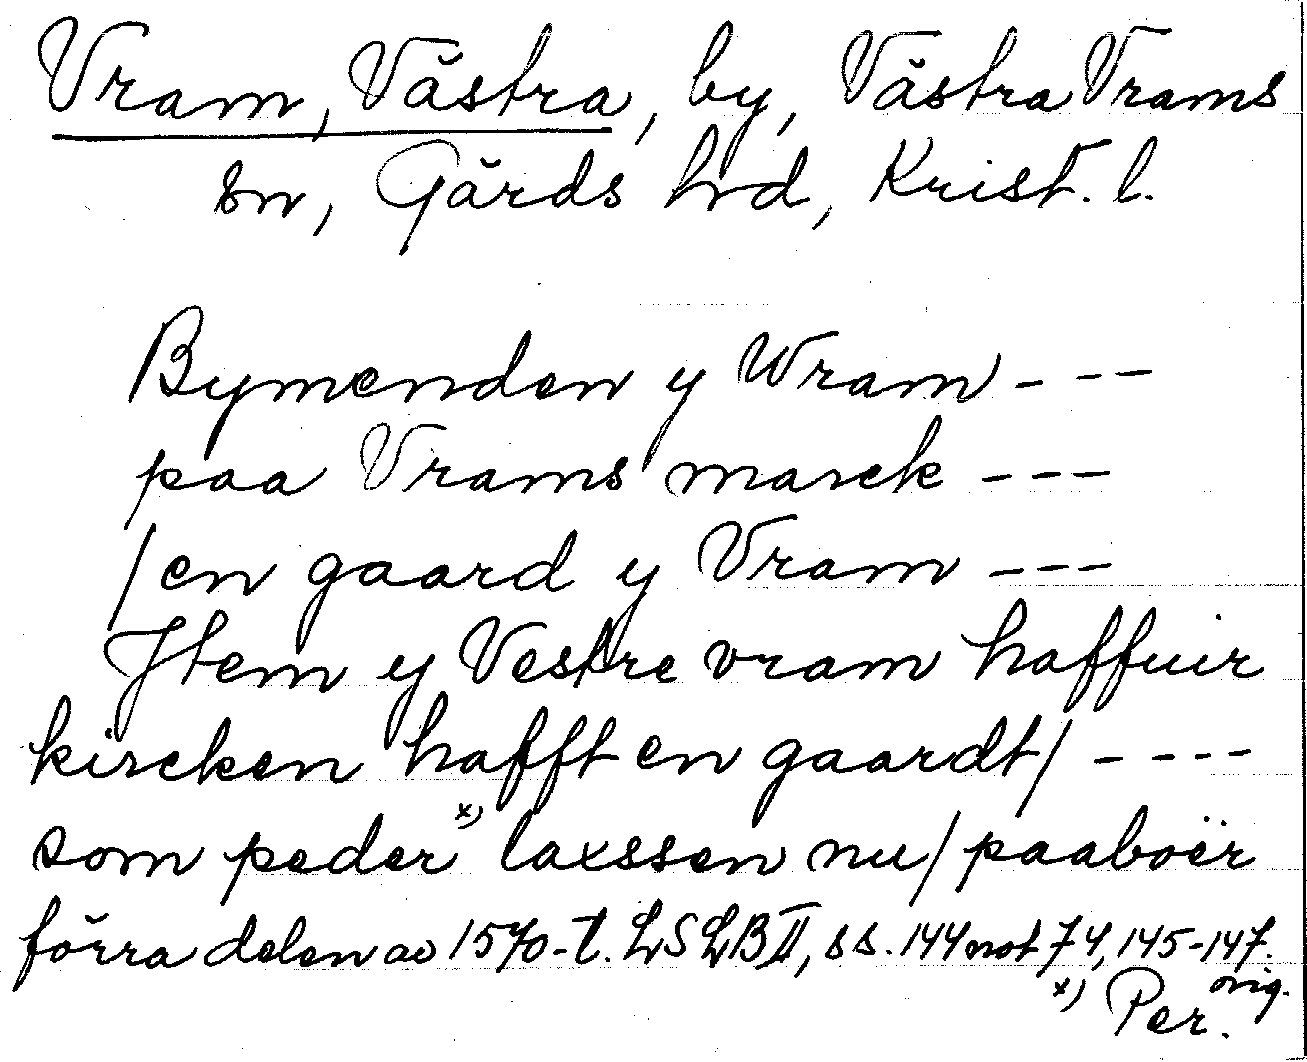 Vram, Västra, by, Västra Vrams
sn, Gärds hrd, Krist. l.
Bymenden y Wram - - -
paa Vrams marck - - -
/en gaard y Vram - - -
Jtem y Vestre vram haffuir
kircken hafft en gaardt/ - - - -
som peder x) laxssen nu/paaboër
förra delen av 1570-t. LSLB II, ss. 144 not 74, 145-147.
x) Per. orig.